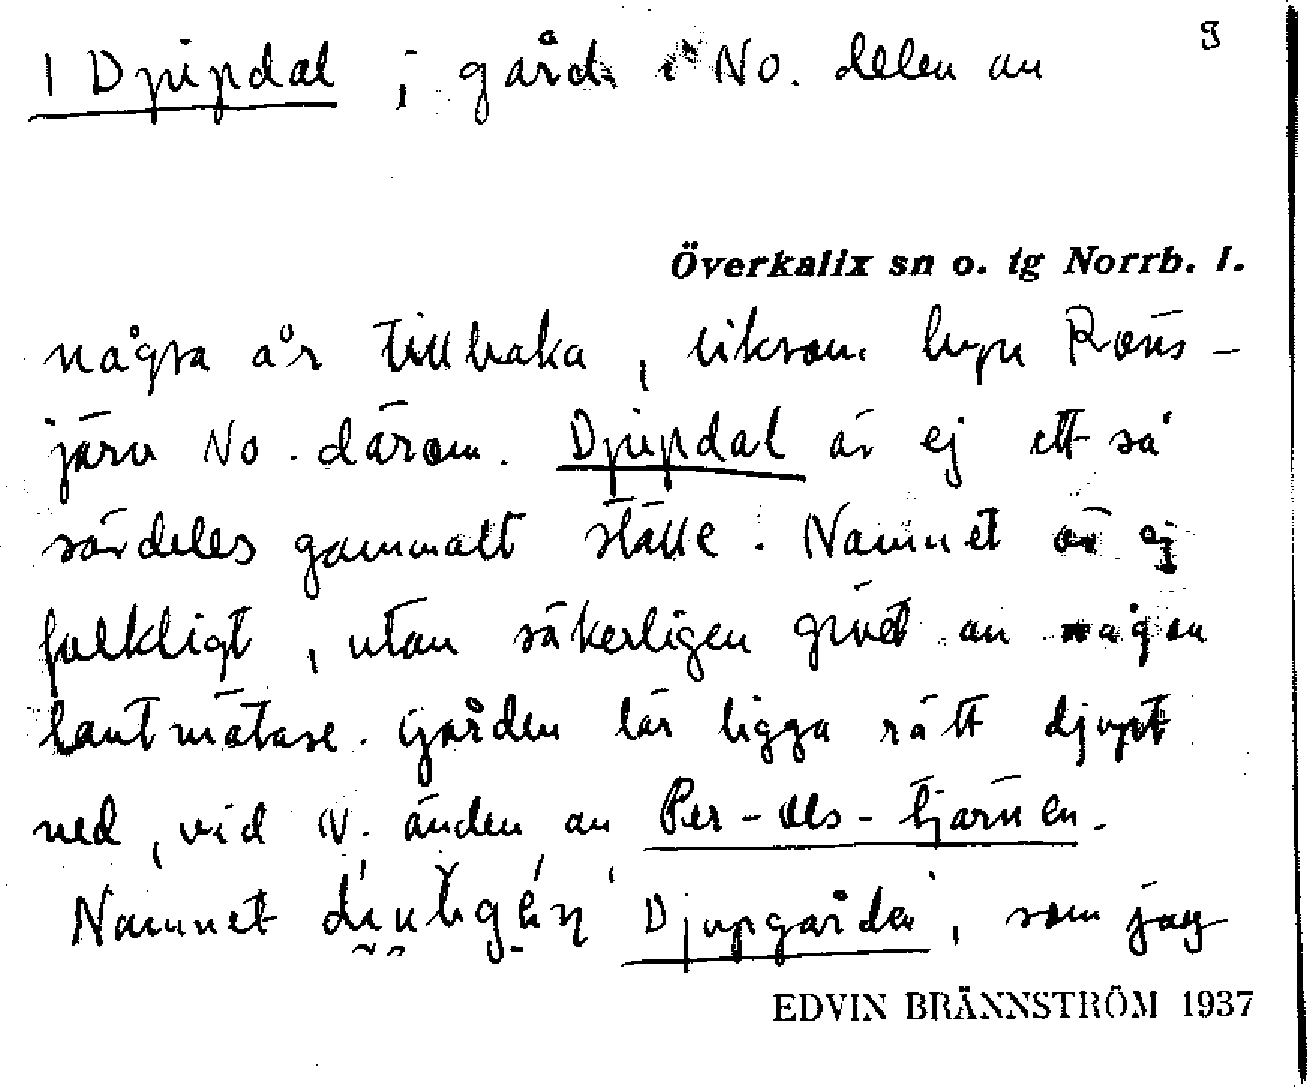 1 Djupdal ; gård i No. delen av 9
Överkalix sn o. tg Norrb. l.
några år tillbaka, liksom byn Räns-
järv No. därom. Djupdal är ej ett så
särdeles gammalt ställe. Namnet är ej
folkligt, utan säkerligen givet av någon
lantmätare. Gården lär ligga rätt djupt
ned, vid N. änden av Per-Ols-tjärnen.
Namnet 'Djupgården', som jag
EDVIN BRÄNNSTRÖM 1937